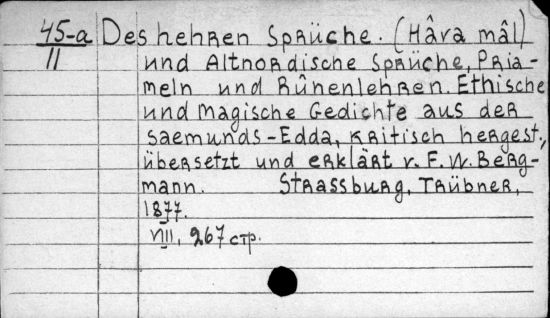 45-a Des hehren Sprüche. (Hâra mâl)
11 und Altnordische Sprüche, Pria-
meln und Rûnenlehren. Ethische
und magische Gedichte aus der
Saemunds-Edda, kritisch hergest.,
übersetzt und erklärt v. F. W. Berg-
mann. Strassburg, Trübner,
1877.
VIII, 267 стр.